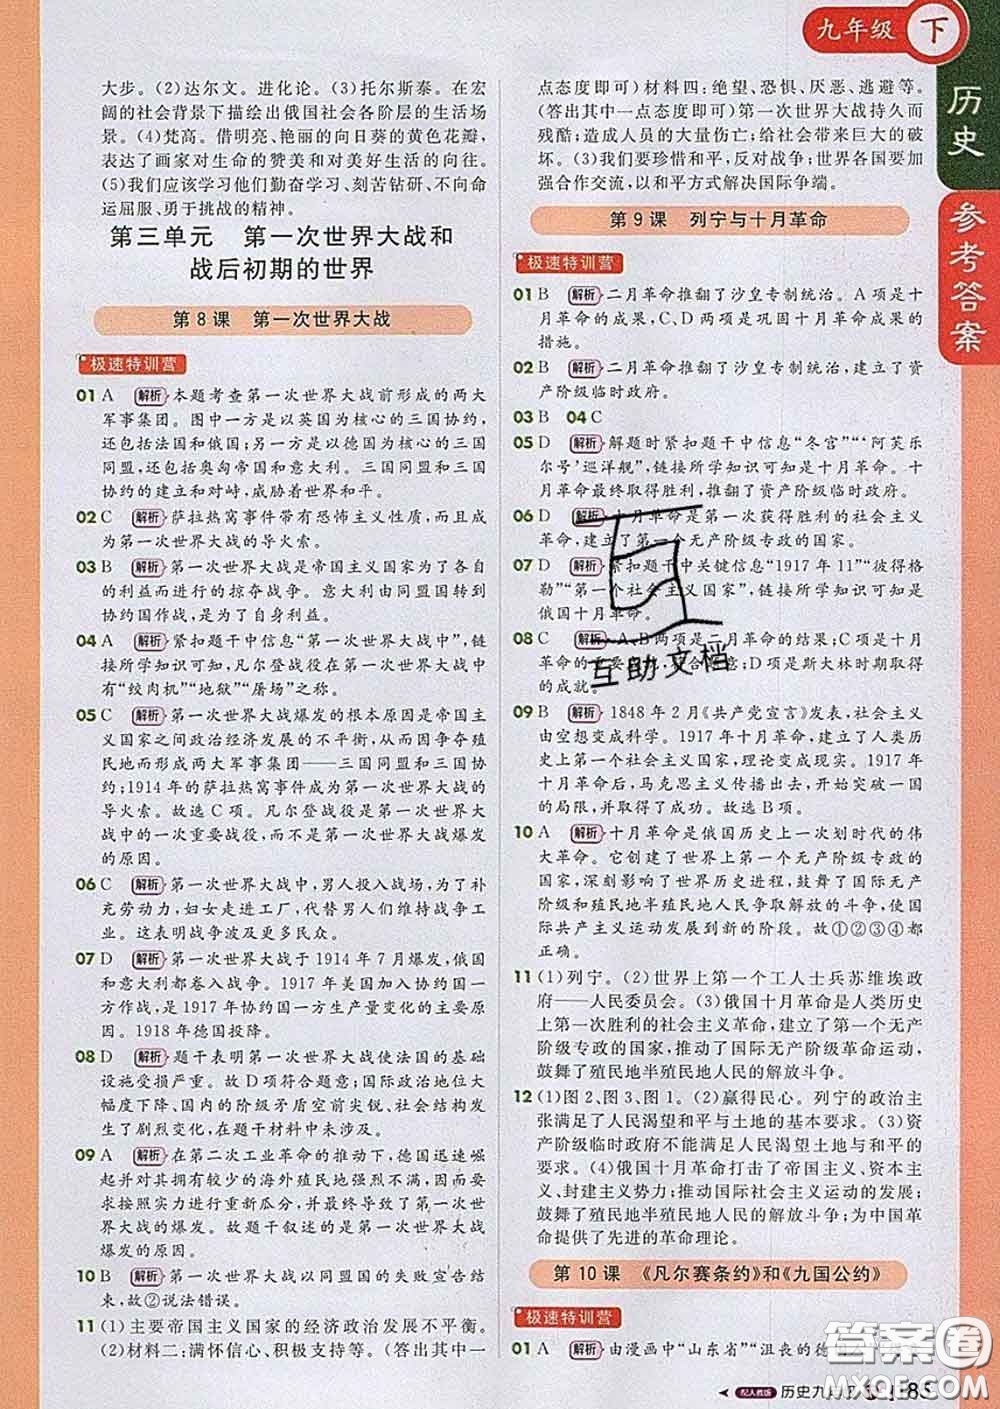 九年级 下
历史
参考答案
大步。(2)达尔文。进化论。(3)托尔斯泰。在宏
阔的社会背景下描绘出俄国社会各阶层的生活场
景。(4)梵高。借明亮、艳丽的向日葵的黄色花瓣，
表达了画家对生命的赞美和对美好生活的向往。
(5)我们应该学习他们勤奋学习、刻苦钻研、不向命
运屈服、勇于挑战的精神。
第三单元　第一次世界大战和
战后初期的世界
第8课　第一次世界大战
极速特训营
01 A 解析 本题考查第一次世界大战前形成的两大
军事集团。图中一方是以英国为核心的三国协约，
还包括法国和俄国；另一方是以德国为核心的三国
同盟，还包括奥匈帝国和意大利。三国同盟和三国
协约的建立和对峙，威胁着世界和平。
02 C 解析 萨拉热窝事件带有恐怖主义性质，而且成
为第一次世界大战的导火索。
03 B 解析 第一次世界大战是帝国主义国家为了各
自的利益而进行的掠夺战争。意大利由同盟国转到
协约国作战，是为了自身利益。
04 A 解析 紧扣题干中信息“第一次世界大战中”，链
接所学知识可知，凡尔登战役在第一次世界大战中
有“绞肉机”“地狱”“屠场”之称。
05 C 解析 第一次世界大战爆发的根本原因是帝国主
义国家之间政治经济发展的不平衡，从而因争夺殖
民地而形成两大军事集团——三国同盟和三国协
约；1914年的萨拉热窝事件成为第一次世界大战的
导火索。故选C项。凡尔登战役是第一次世界大
战中的一次重要战役，而不是第一次世界大战爆发
的原因。
06 C 解析 第一次世界大战中，男人投入战场，为了补
充劳动力，妇女走进工厂，代替男人们维持战争工
业。这表明战争波及更多民众。
07 D 解析 第一次世界大战于1914年7月爆发，俄国
和意大利都卷入大战。1917年美国加入协约国一
方作战，是1917年协约国一方生产量变化的主要原
因。1918年德国投降。
08 D 解析 题干表明第一次世界大战使法国的基础
设施受损严重。故D项符合题意；国际政治地位大
幅度下降、国内的阶级矛盾空前尖锐、社会结构发生
了剧烈变化，在题干材料中未涉及。
09 A 解析 在第二次工业革命的推动下，德国迅速崛
起并对其拥有较少的海外殖民地强烈不满，因此
要求按照实力进行重新瓜分，并最终导致了第一次
世界大战的爆发。故题干叙述的是第一次世界大战
爆发的原因。
10 B 解析 第一次世界大战以同盟国的失败宣告结
束，故②说法错误。
11 (1)主要帝国主义国家的经济政治发展不平衡。
(2)材料二：满怀信心、积极支持等。(答出其中一
点态度即可)材料四：绝望、恐惧、厌恶、逃避等。
(答出其中一点态度即可)第一次世界大战持久而
残酷；造成人员的大量伤亡；给社会带来巨大的破
坏。(3)我们要珍惜和平，反对战争；世界各国要加
强合作交流，以和平方式解决国际争端。
第9课　列宁与十月革命
极速特训营
01 B 解析 二月革命推翻了沙皇专制统治。A项是十
月革命的成果，C、D两项是巩固十月革命成果的
措施。
02 B 解析 二月革命推翻了沙皇专制统治，建立了资
产阶级临时政府。
03 B 04 C
05 D 解析 解题时紧扣题干中信息“冬宫”“‘阿芙乐
尔号’巡洋舰”，链接所学知识可知是十月革命。十
月革命最终取得胜利，推翻了资产阶级临时政府。
06 D 解析 十月革命是第一次获得胜利的社会主义
革命，建立了第一个无产阶级专政的国家。
07 D 解析 紧扣题干中关键信息“1917年11”“彼得格
勒”“第一个社会主义国家”，链接所学知识可知是
俄国十月革命。
08 C 解析 A、B两项是二月革命的结果；C项是十月
革命的重要成就，符合题意；D项是斯大林时期取得
的成就。
09 B 解析 1848年2月《共产党宣言》发表，社会主义
由空想变成科学。1917年十月革命，建立了人类历
史上第一个社会主义国家，理论变成现实。1917年
十月革命后，马克思主义传播出去，打破了一国
的局限，并取得了成功。故选B项。
10 A 解析 十月革命是俄国历史上一次划时代的伟
大革命。它创建了世界上第一个无产阶级专政的
国家，深刻影响了世界历史进程，鼓舞了国际无产
阶级和殖民地半殖民地人民争取解放的斗争，使
国际共产主义运动发展到新的阶段。故①②③④都
正确。
11 (1)列宁。(2)世界上第一个工人士兵苏维埃政
府——人民委员会。(3)俄国十月革命是人类历史
上第一次胜利的社会主义革命，建立了第一个无产
阶级专政的国家，推动了国际无产阶级革命运动，
鼓舞了殖民地半殖民地人民的解放斗争。
12 (1)图2、图3、图1。(2)赢得民心。列宁的政治主
张满足了人民渴望和平与土地的基本要求。(3)资
产阶级临时政府不能满足人民渴望土地与和平的
要求。(4)俄国十月革命打击了帝国主义、资本主
义、封建主义势力；推动国际社会主义运动的发展；
鼓舞了殖民地半殖民地人民的解放斗争；为中国革
命提供了先进的革命理论。
第10课　《凡尔赛条约》和《九国公约》
极速特训营
01 A 解析 由漫画中“山东省”“沮丧的德
互助文档
配人教版 历史九年 85
答案圈
MXQE.COM